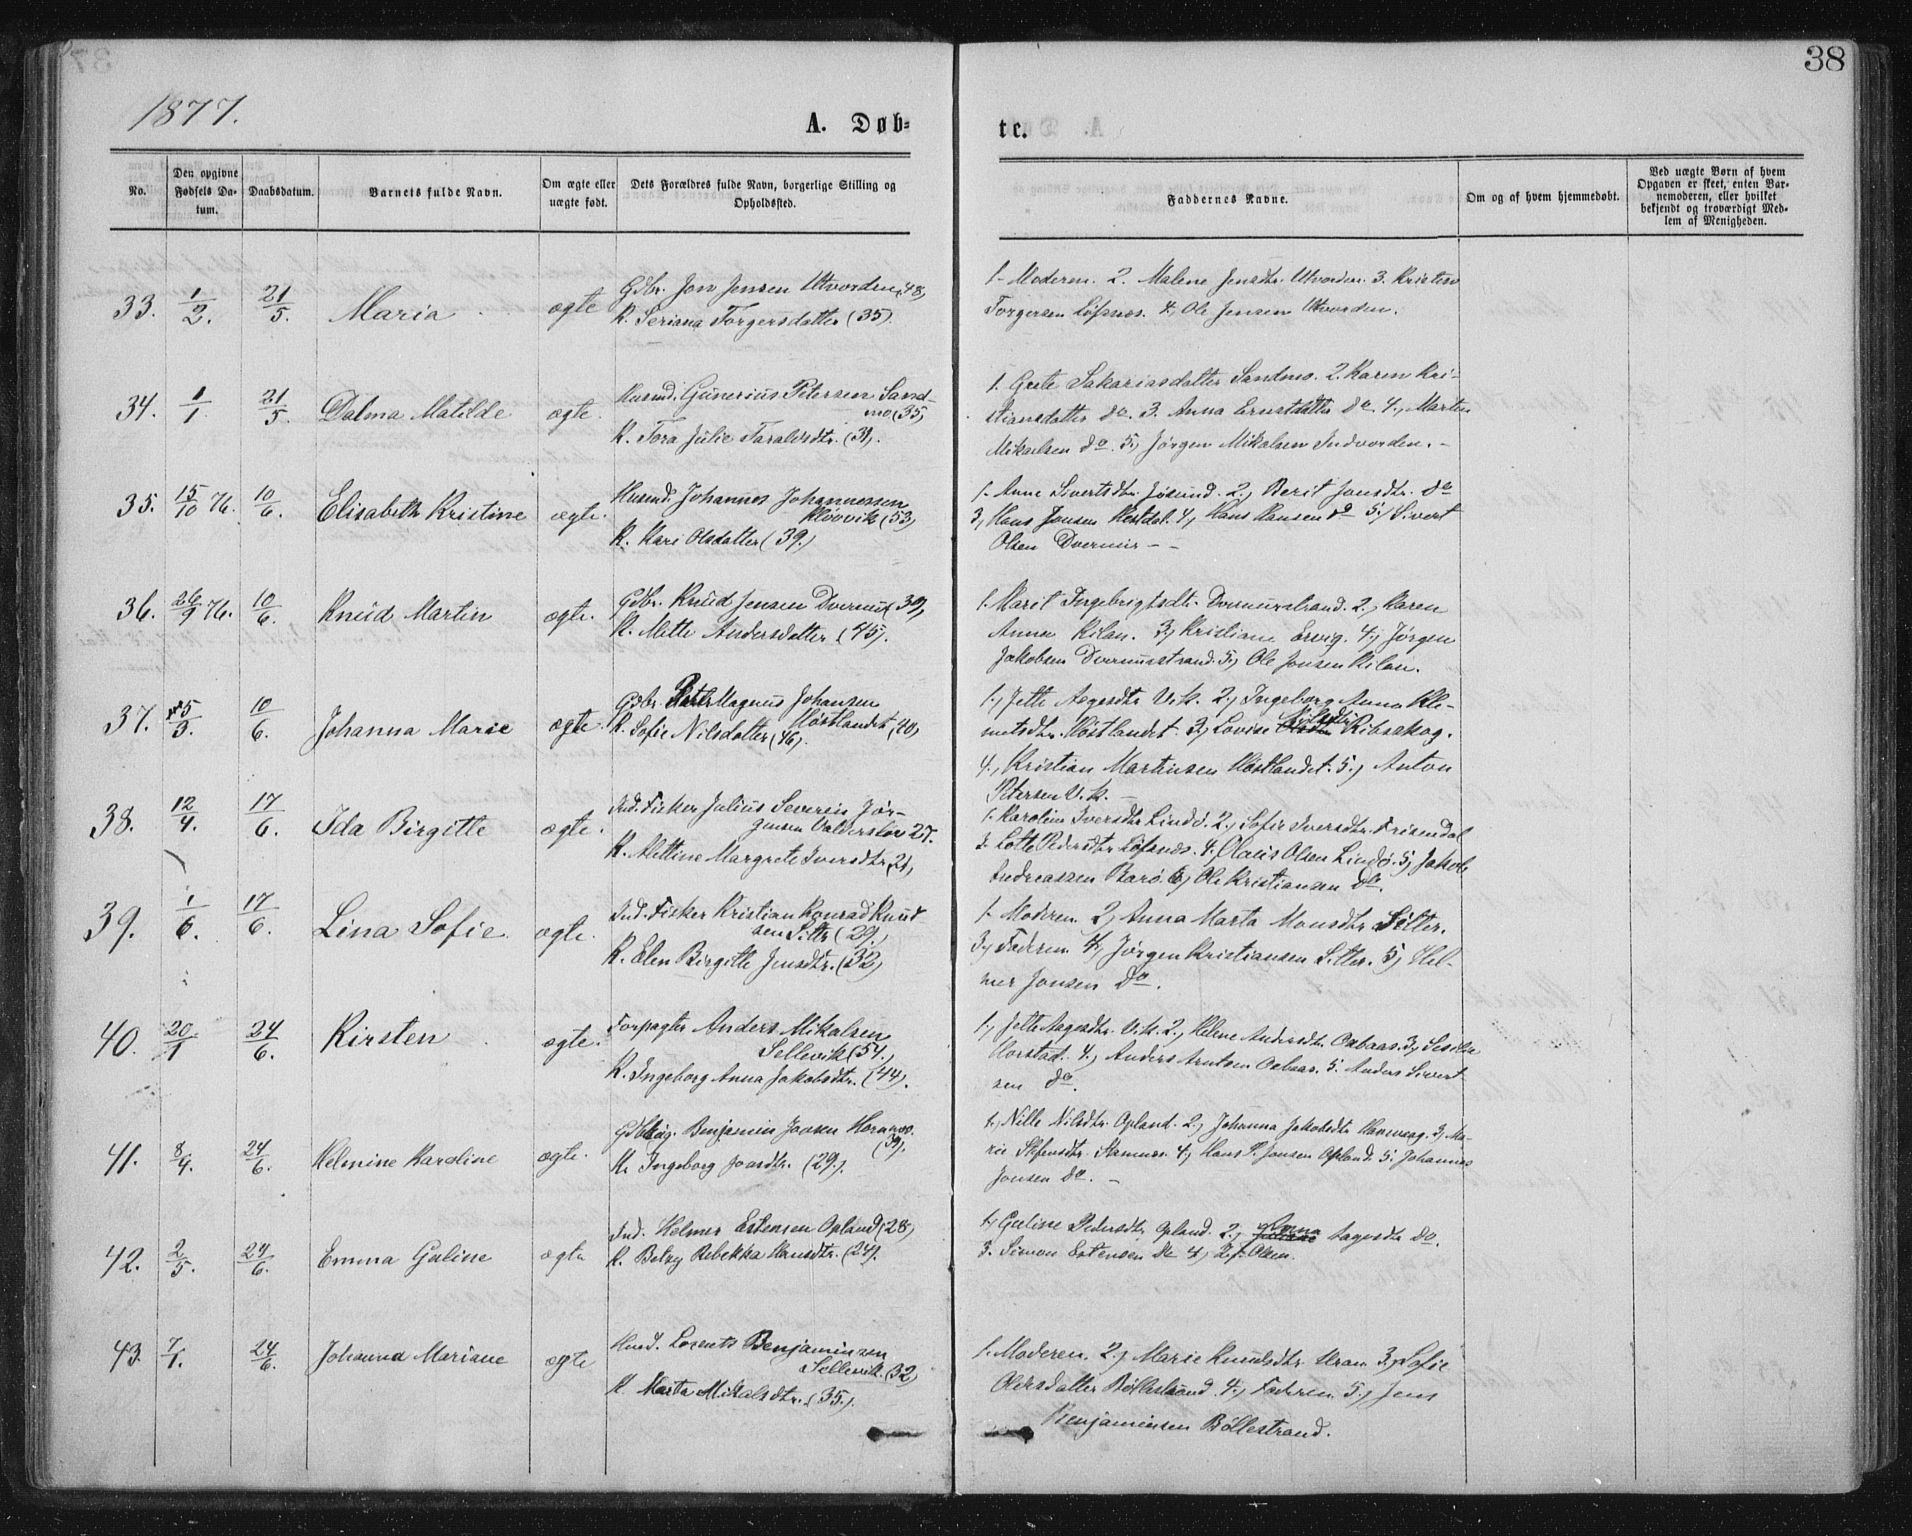 38
1877.
A. Døb-
te.
No.
Den opgivne Fødsels Da-tum.
Daabsdatum.
Barnets fulde Navn.
Om ægte eller uægte født.
Dets Forældres fulde Navn, borgerlige Stilling og Opholdssted.
Faddernes Navne.
Om og af hvem hjemmedøbt.
Ved uægte Børn af hvem Opgaven er skeet, enten Bar-nemoderen, eller hvilket bekjendt og troværdigt Med-lem af Menigheden.
33. 1/2. 21/5. Maria ægte
Gdbr. Jon Jensen Utvorden (48)
K. Seriana Torgersdatter (35).
1. Moderen. 2. Malene Jensdtr. Utvorden. 3. Kristen
Torgersen Løfsnes. 4, Ole Jensen Utvorden.
34. 1/1. 21/5. Dalma Matilde ægte.
Husmd. Gunerius Petersen Sand-
mo (35)
K. Tora Julie Taraldsdtr. (31).
1. Grete Sakariasdatter Sandmo. 2. Karen Kri-
stiansdatter do. 3. Anna Ernstdatter do 4, Marten
Mikaelsen do. 5, Jørgen Mikalsen Indvorden. -
35. 15/10 76. 10/6. Elisabeth Kristine ægte.
Husmd. Johannes Johannessen
Kløvvik (53)
K. Kari Olsdatter (39.)
1. Anne Sivertsdtr. Jøsund. 2, Berit Jonsdtr. do
3, Hans Jonsen Kvistdal. 4, Hans Hansen do 5, Sivert
Olsen Dvermir - -
36. 26/9 76. 10/6. Knud Martin ægte.
Gdbr. Knud Jensen Dvermo (39)
K. Mette Andersdatter. (45).
1. Marit Ingebrigtsdtr. Dvermusstrand. 2, Karen
Anna Kilan. 3, Kristiane Ervig. 4, Jørgen
Jakobsen Dvermusstrand. 5, Ole Jonsen Kilan.
37. 15/3. 10/6. Johanna Marie ægte
Gdbr. Peter Magnus Johansen
Høstlandet (40)
K. Sofie Nilsdatter (46).
1, Jette Aagesdtr Vik. 2, Ingeborg Anna Kle-
metsdtr. Høstlandet. 3, Lovise Nilsdtr Ribsskog.
4, Kristian Martinsen Høstlandet. 5, Anton
Petersen Vik. -
38. 12/4. 17/6. Ida Birgitte ægte.
Ind. Fisker Julius Severin Jør-
gensen Valdersløv 27.
K. Mettine Margrete Iversdtr. 21,
1. Karoline Iversdtr Lindø. 2, Sofie Iversdtr. Frisendal
3. Lotte Pedersdtr Løfsnes. 4. Claus Olsen Lindø. 5, Jakob
Andreassen Barø. 6, Ole Kristiansen do.
39. 1/6. 17/6. Lina Sofie ægte.
Ind. Fisker Kristian Konrad Knud
sen Sitter (29.)
K. Elen Birgitte Jensdtr. (32)
1. Moderen 2, Anna Marta Monsdtr Sitter.
3, Faderen 4, Jørgen Kristiansen Sitter. 5, Hel-
mer Jonsen do.
40. 20/1 24/6. Kirsten ægte.
Forpagter Anders Mikalsen
Sellevik (54.)
K. Ingeborg Anna Jakobsdtr. (44).
1, Jette Aagesdtr. Vik. 2, Helene Andersdtr. Oxbaas. 3, Sesilie
Horstad. 4, Anders Arntsen Oxbaas. 5. Anders Sivert
sen do.
41. 8/4. 24/6. Helmine Karoline ægte.
Benjamin Joasen Hernnes.
(39).
K. Ingeborg Joasdtr. (29.).
1, Nille Nilsdtr. Opland. 2, Johanna Jakobsdtr. 3, Ma-
rie Stefensdtr. Stamnes. 4, Hans P. Jonsen Opland. 5. Johannes
Jonsen do. -
42. 2/5. 24/6. Emma Galine ægte
Ind. Helmer Estensen Opland (28)
K. Betzy Rebekka Hansdtr. (24).
1, Galine Pedersdtr Opland. 2, Aagesdtr do.
3. Simon Estensen do 4, Olsen.
43. 7/1. 24/6. Johanna Mariane ægte
Husmd. Lorents Benjaminsen
Sellevik. (32)
K. Marta Mikalsdtr. (35.).
1. Moderen. 2, Marie Knudsdtr. Uran 3, Sofie
Olersdatter Bøllestrand. 4, Faderen 5, Jens
Benjaminsen Bøllestrand.